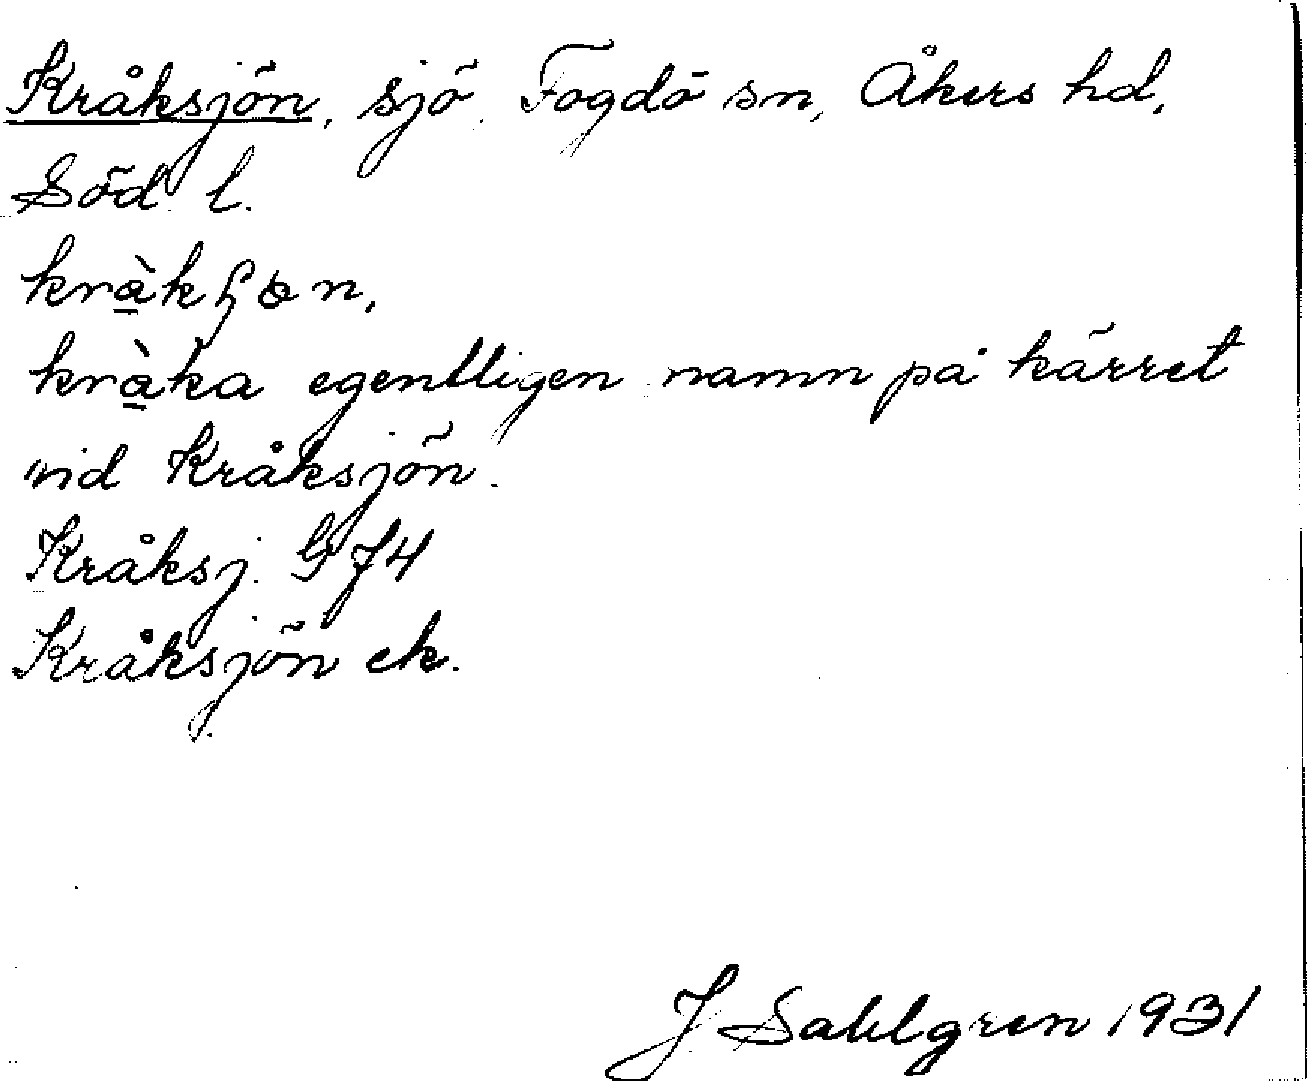 Kråksjön, sjö, Fogdö sn, Åkers hd,
Söd. l.
krà̱kɧɵn,
krà̱ka egentligen namn på kärret
vid Kråksjön.
Kråksj. GJ4
Kråksjön ek.
J Sahlgren 1931